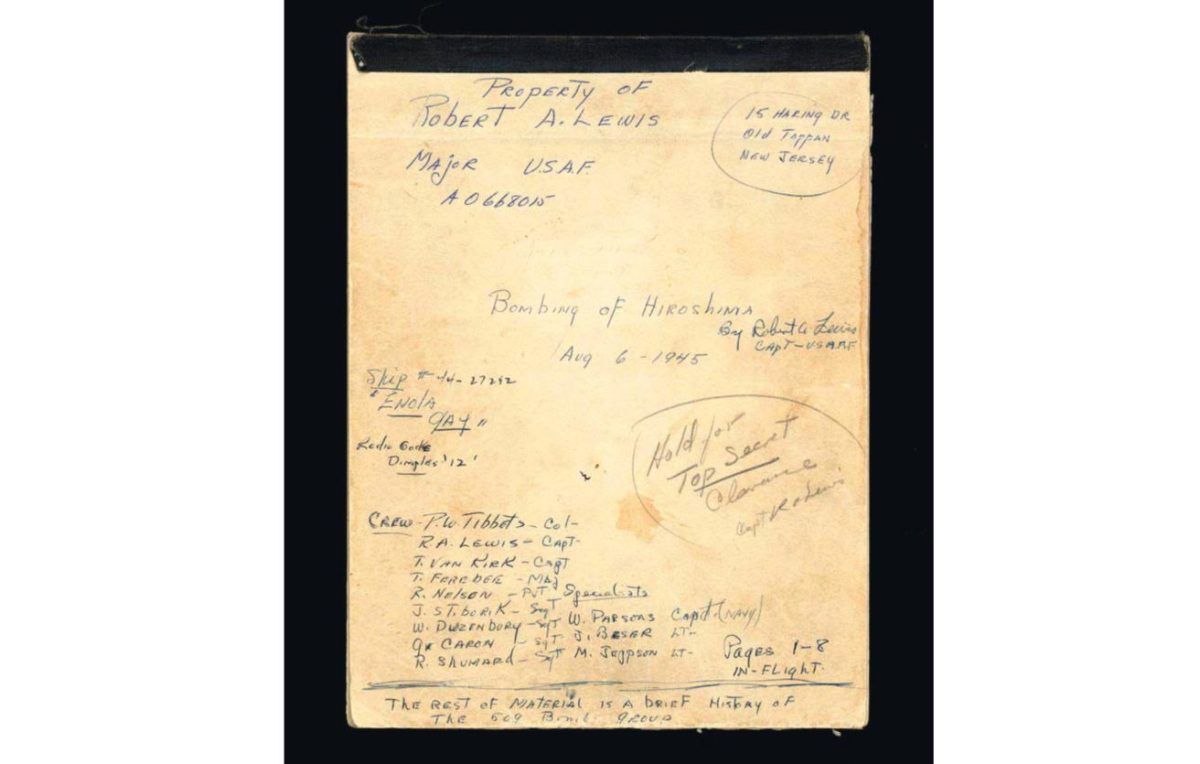 Property of
Robert A. Lewis
Major U.S.A.F.
A0668015
15 Haring Dr
Old Tappan
New Jersey
Bombing of Hiroshima
By Robert A Lewis
Capt-USAAF
Aug 6-1945
Ship # 44-27292
"Enola
Gay"
Radio Code
Dimples '12'
Hold for
Top Secret
Clearance
Capt R A Lewis
Crew - P.W Tibbets - Col-
R.A. Lewis - Capt-
T. Van Kirk - Capt
T. Ferebee - Maj
R. Nelson - Pvt Specialists
J. Stiborik - Sgt
W. Duzenbury - Sgt W. Parsons Capt. (Navy)
G. Caron - Sgt. J. Beser Lt-
R. Shumard - Sgt M. Jeppson Lt-
Pages 1-8
In-Flight-
The rest of material is a brief history of
The 509 Bomb group